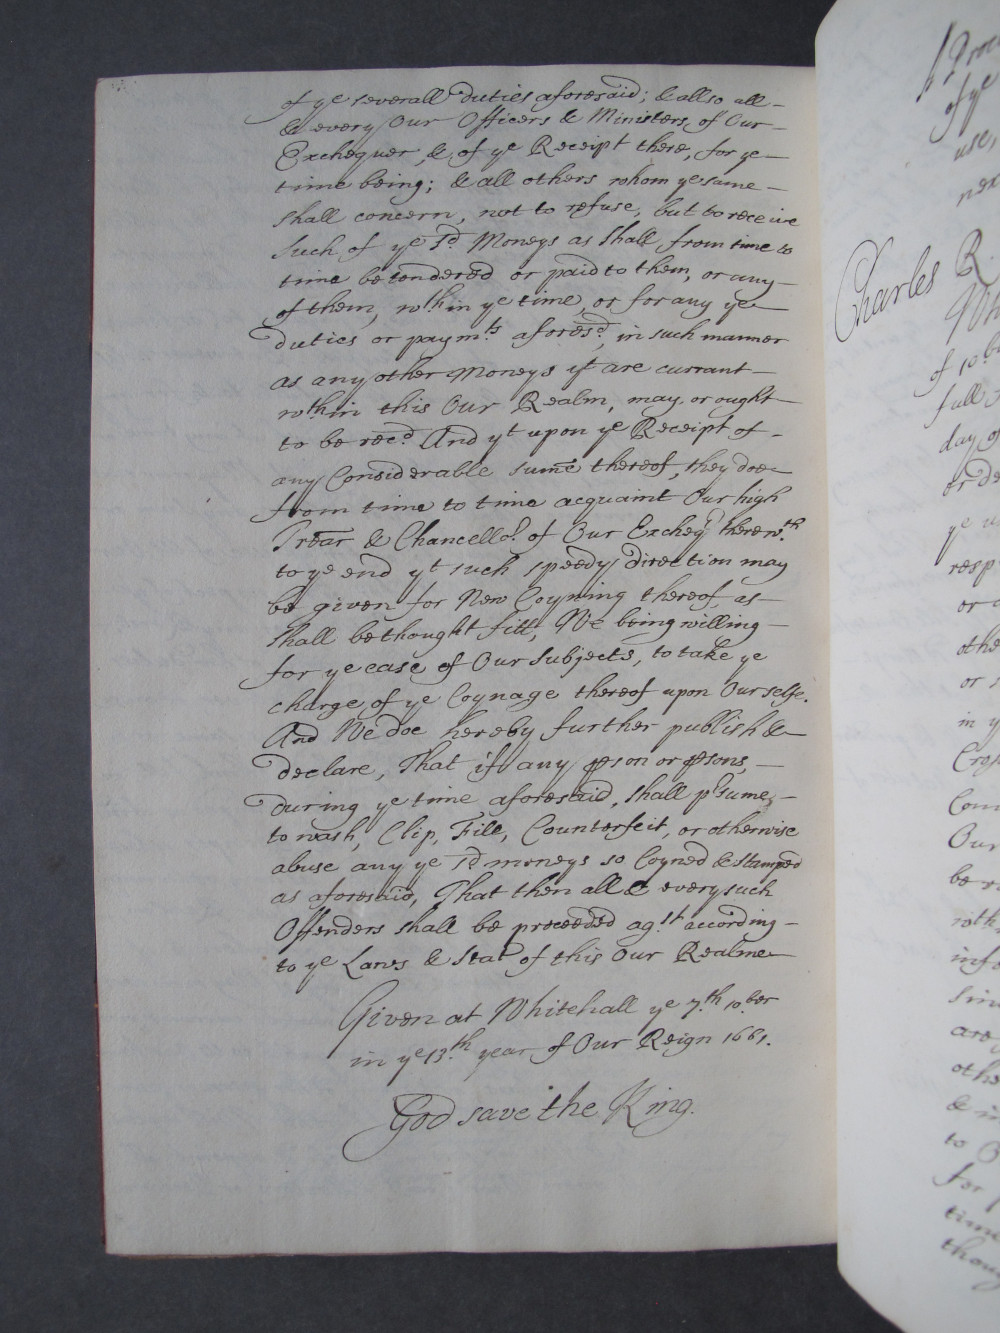 of ye severall Duties aforesaid; & allso all
& every Our Officers & Ministers of Our
Exchequer, & of ye Receipt there, for ye
time being; & all others whom ye same
shall concern, not to refuse, but to receive
Such of ye sd. Moneys as shall from time to
time be tendered or paid to them, or any
of them, wth.in ye time, or for any ye
duties or paymts. aforesd., in such manner
as any other Moneys yt are currant
wth.in this Our Realm, may or ought
to be recd. And yt upon ye Receipt of
any Considerable sume thereof, they doe
from time to time acquaint Our high
Trear & Chancellor. of Our Excheqr. therewth.
to ye end yt such speedy direction may
be given for New Coyning thereof, as
shall be thought fitt, We being willing
for ye ease of Our Subjects, to take ye
charge of ye Coynage thereof upon Our selfe.
And We doe hereby further publish &
declare, That if any pson or psons,
during ye time aforesaid, shall psume,
to wash, Clip, File, Counterfeit, or otherwise
abuse any ye sd moneys so Coyned & stamped
as aforesaid, That then all & every such
Offenders shall be proceeded agst. according
to ye Laws & Stat of this Our Realme
Given at Whitehall ye 7th. 10ber
in ye 13th. year of Our Reign 1661.
God save the King.
of ye
use,
Charles R.
of 10b
full
day of
ye
resp
or
othe
or
in y
Com
Our
be
info
are
othe
to
for
time
thoug